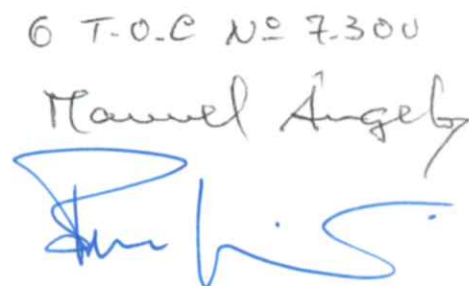 O T.O.C Nº 7.300
Manuel Ângelo